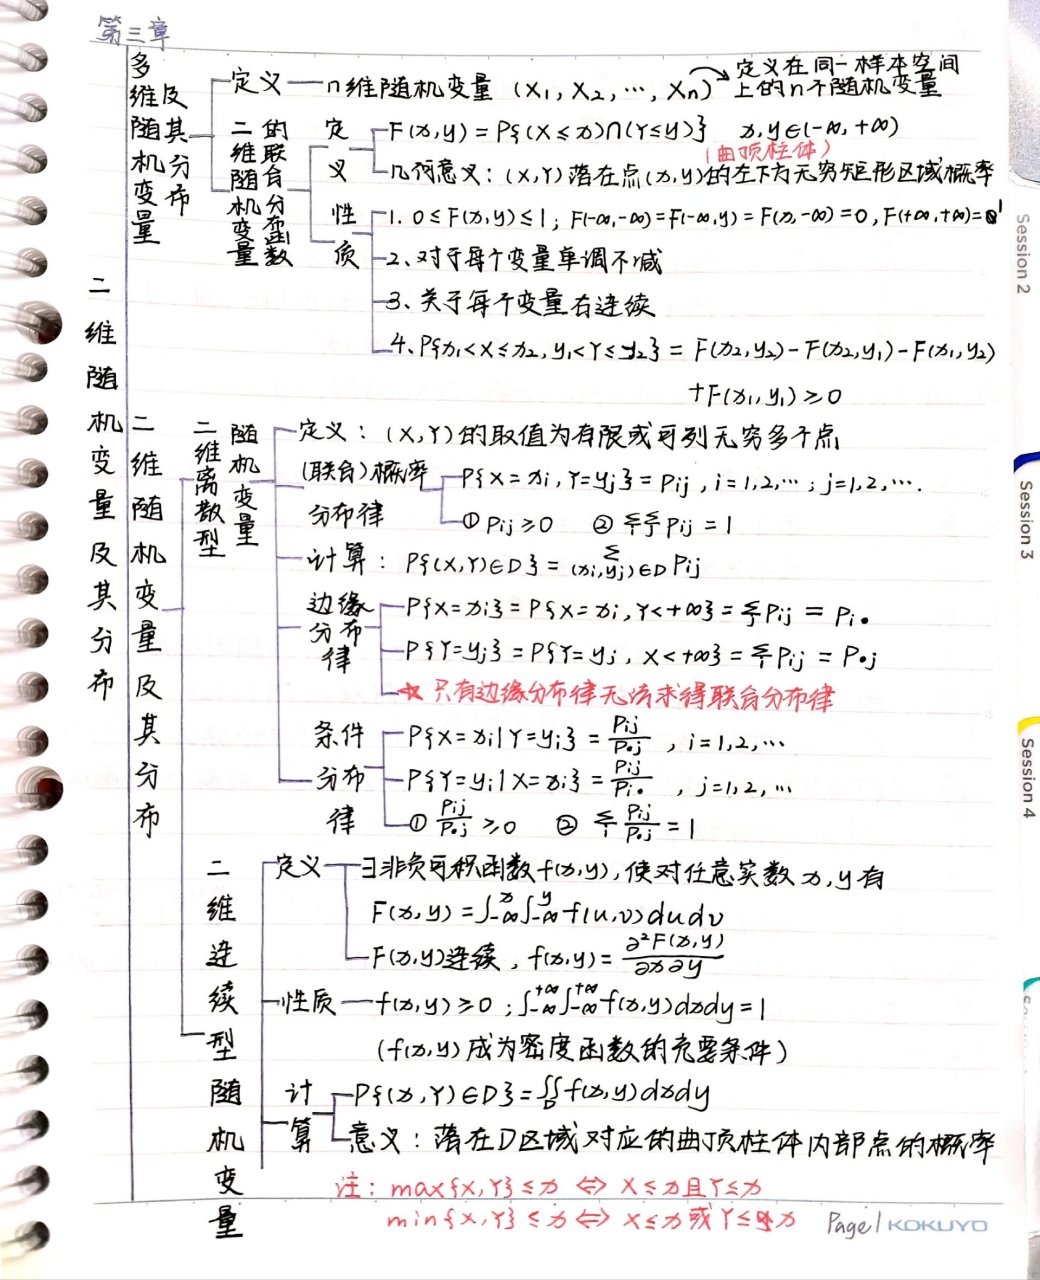 第三章
多维随机变量及其分布
定义 — n维随机变量 (X₁, X₂, …, Xn) → 定义在同一样本空间
上的n个随机变量
二维随机变量的联合分布函数
定义
F(x,y) = P{(X≤x)∩(Y≤y)} x,y∈(-∞,+∞)
(曲顶柱体)
几何意义:(X,Y)落在点(x,y)的左下方无穷矩形区域概率
性质
1. 0≤F(x,y)≤1; F(-∞,-∞)=F(-∞,y)=F(x,-∞)=0, F(+∞,+∞)=1
2、对于每个变量单调不减
3、关于每个变量右连续
4、P{x₁<X≤x₂, y₁<Y≤y₂} = F(x₂,y₂)-F(x₂,y₁)-F(x₁,y₂)
+F(x₁,y₁)≥0
二维随机变量及其分布
二维随机变量及其分布
二维离散型随机变量
定义:(X,Y)的取值为有限或可列无穷多个点
(联合)概率分布律
P{X=xi, Y=yj} = Pij, i=1,2,…; j=1,2,….
① Pij≥0 ② ΣiΣj Pij = 1
计算: P{(X,Y)∈D} = Σ(xi,yj)∈D Pij
边缘分布律
P{X=xi} = P{X=xi, Y<+∞} = Σj Pij = Pi•
P{Y=yj} = P{Y=yj, X<+∞} = Σi Pij = P•j
★ 只有边缘分布律无法求得联合分布律
条件分布律
P{X=xi|Y=yi} = Pij/P•j, i=1,2,…
P{Y=yi|X=xi} = Pij/Pi•, j=1,2,…
① Pij/P•j ≥0 ② Σi Pij/P•j = 1
二维连续型随机变量
定义 — ∃非负可积函数f(x,y),使对任意实数x,y有
F(x,y) = ∫₋∞ˣ∫₋∞ʸ f(u,v)dudv
F(x,y)连续, f(x,y) = ∂²F(x,y)/∂x∂y
性质 — f(x,y)≥0; ∫₋∞⁺∞∫₋∞⁺∞ f(x,y)dxdy=1
(f(x,y)成为密度函数的充要条件)
计算
P{(x,Y)∈D} = ∬D f(x,y)dxdy
意义:落在D区域对应的曲顶柱体内部点的概率
注: max{X,Y}≤x ⇔ X≤x且Y≤x
min{X,Y}≤x ⇔ X≤x或Y≤x
Page 1 KOKUYO
Session 2
Session 3
Session 4